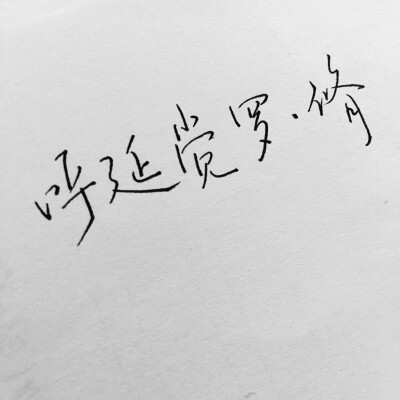 呼延觉罗·脩